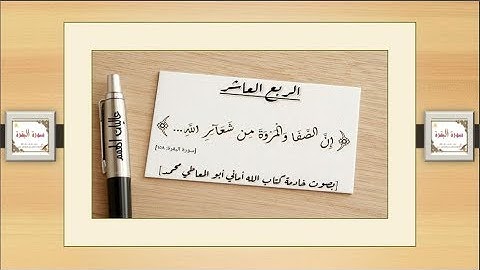 الربع العاشر
﴿ إِنَّ الصَّفَا وَالْمَرْوَةَ مِن شَعَآئِرِ اللَّهِ... ﴾
[سورة البقرة: ١٥٨]
[بصوت خادمة كتاب الله أماني أبو العاطي محمد]
عاليات الهمم
سورة البقرة
سورة البقرة